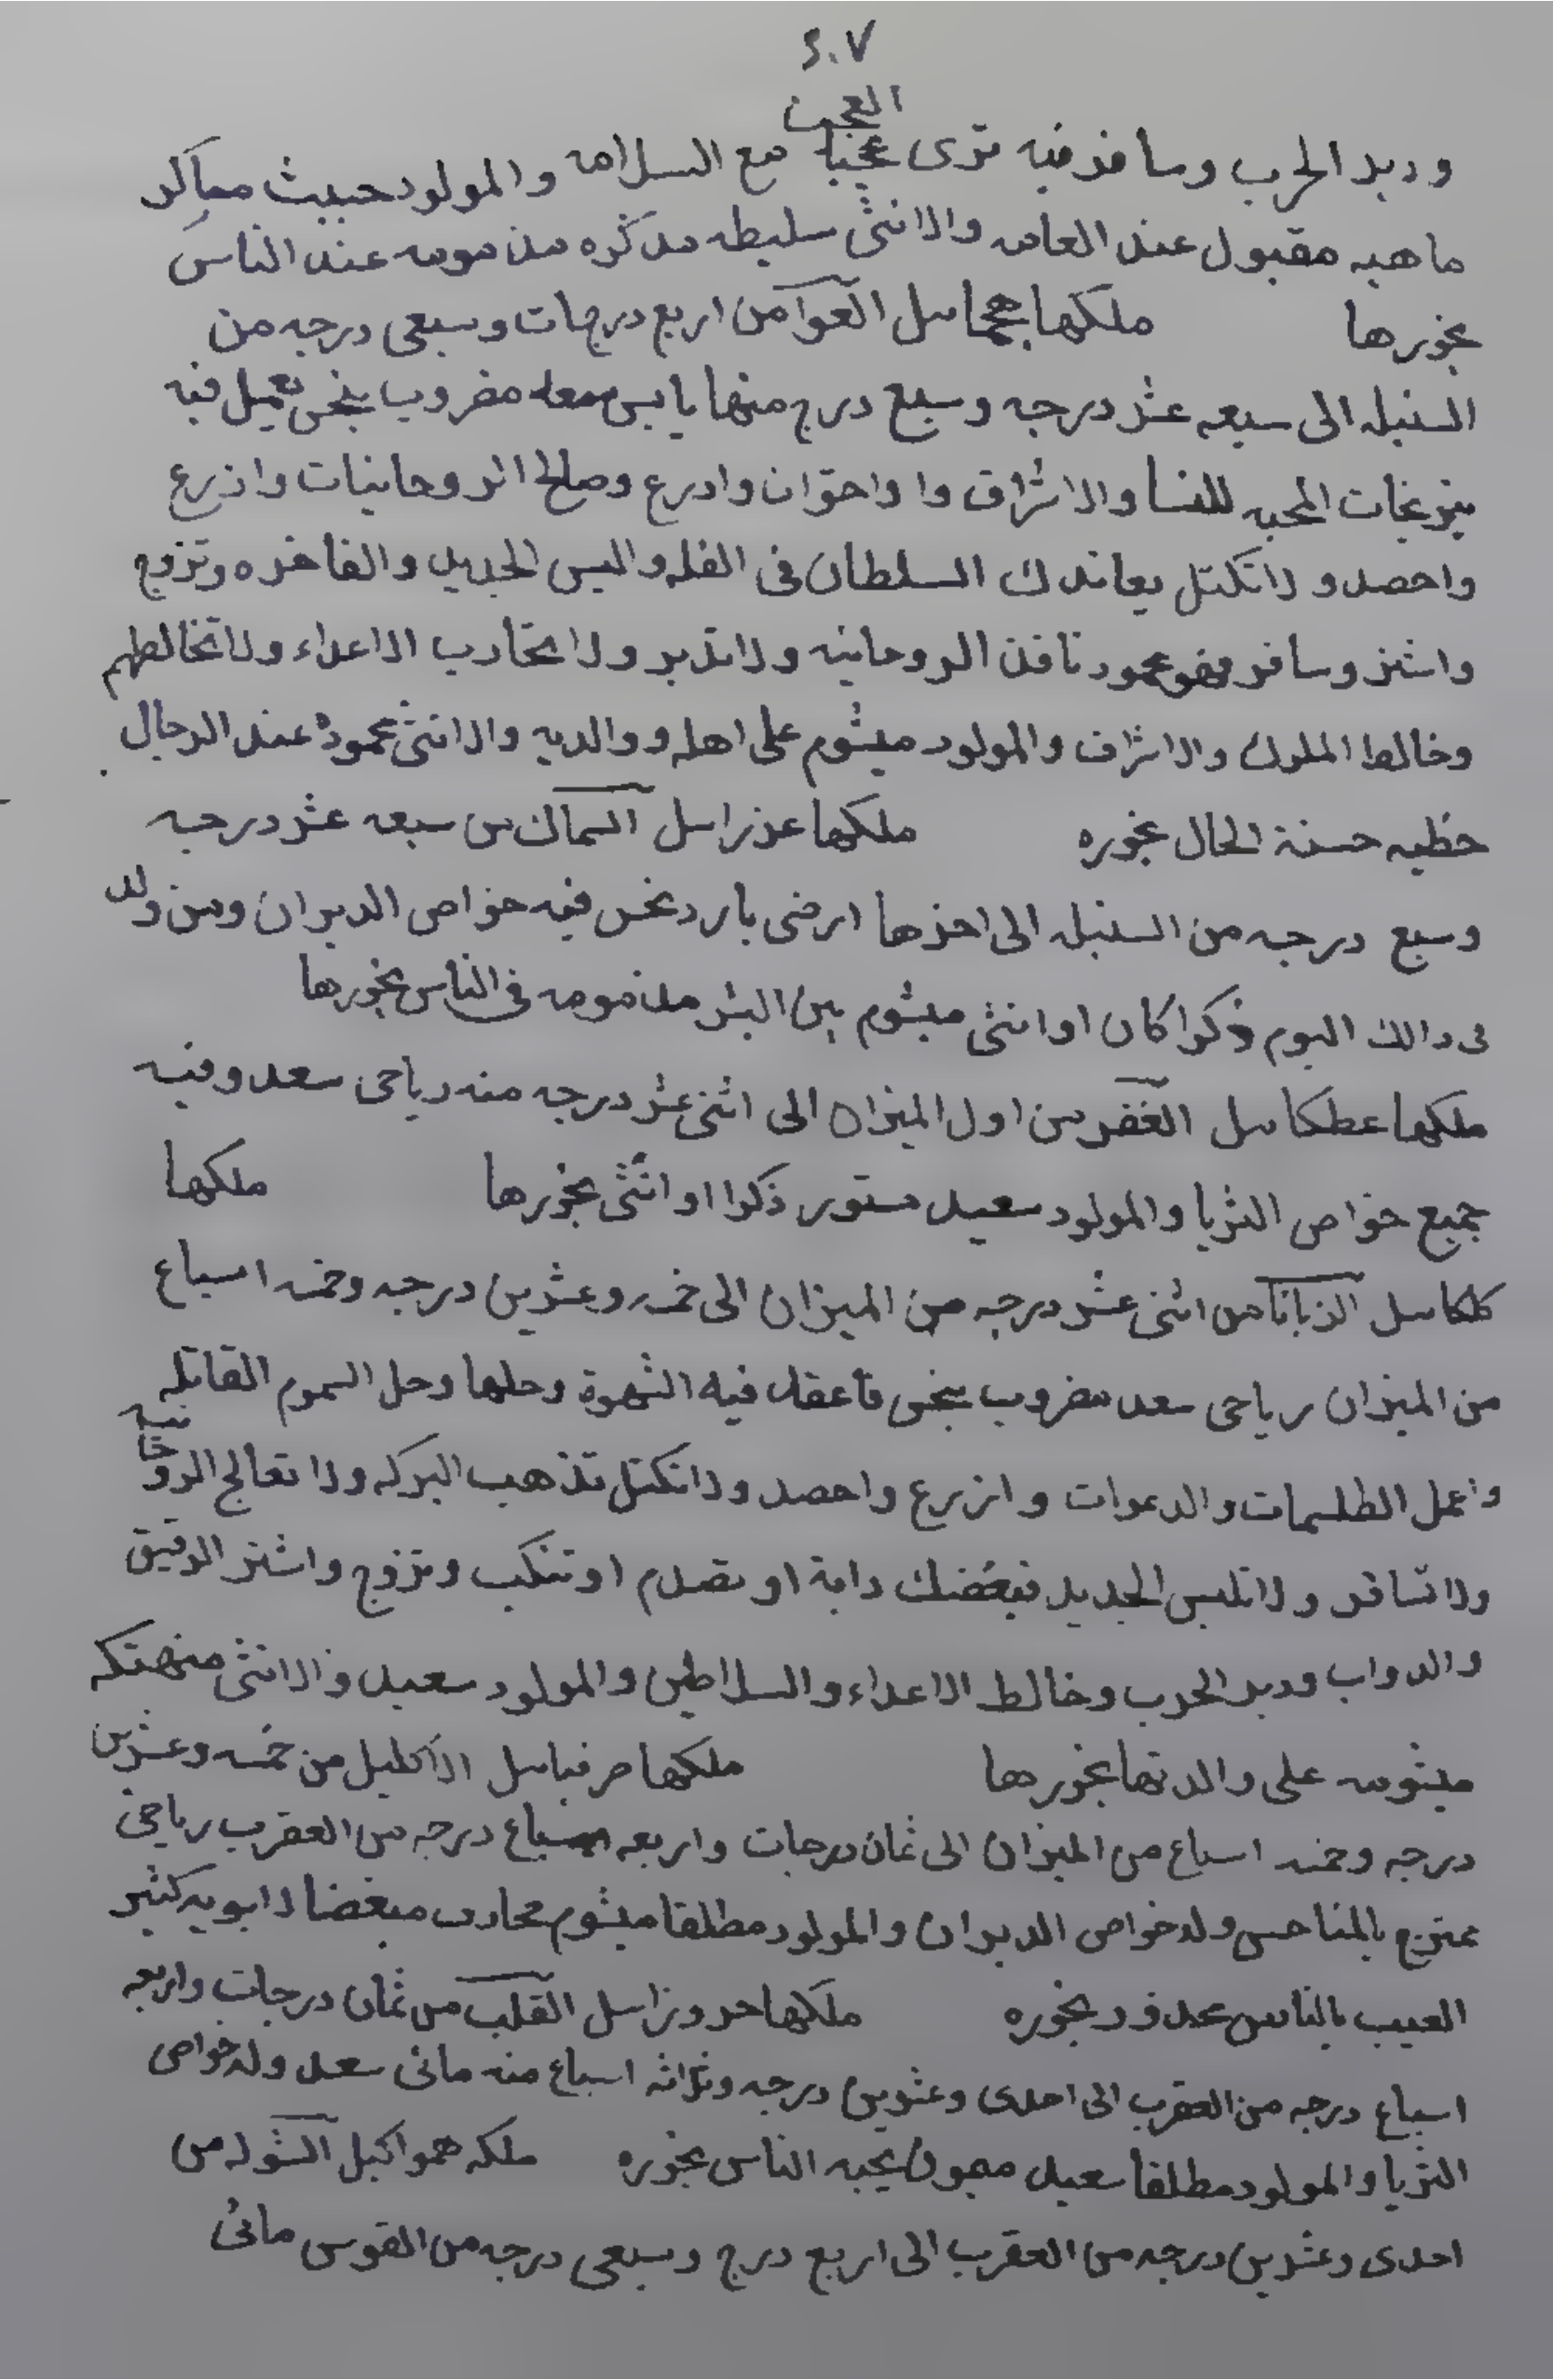 ٢٠٧
العجب
ودبر الحرب وسافر فيه ترى عجبا مع السلامه والمولود خبيث مماكر
ماهيه مقبول عند العامه والانثى سليطه مدكره مذمومه عند الناس
بخورها ملكها العوا من اربع درجات وسبعى درجه من
السنبله الى سبعه عشر درجه وسبع درج منها يابس مضروب بنحس تعمل فيه
نيرنجات المحبه للنسا والاشراف وا واخوان وادرع وصالح الروحانيات وازرع
واحصد ولا تكتل يعاندك السلطان فى الغله والبس الجديد والفاخره وتزوج
واشتر وسافر فهو محمود نافذ الروحانيه ولا تدبر ولا تحارب الاعداء ولا تخالطهم
وخالط الملوك والاشراف والمولود ميشوم على اهله ووالديه والانثى محموده عند الرجال
حظيه حسنة الحال بخوره ملكها عزراسل السماك من سبعه عشر درجه
وسبع درجه من السنبله الى اخرها ارضى بارد نحس فيه خواص الدبران ومن ولد
فى دالك اليوم ذكرا كان او انثى ميشوم بين البشر مذمومه فى الناس بخورها
ملكها عطكاسل الغفر من اول الميزان الى اثنى عشر درجه منه رياحى سعد وفيه
جميع خواص الثريا والمولود سعيد مستور ذكرا او انثى بخورها ملكها
كلكاسل الزبانا من اثنى عشر درجه من الميزان الى خمسه وعشرين درجه وخمسه اسباع
من الميزان رياحى سعد مضروب بنحس فاعقد فيه الشهوة وحلها وحل السموم القاتله
واعمل الطلسمات والدعوات وازرع واحصد ولا تكتل تذهب البركه ولا تعالج الروحانيه
ولا تسافر ولا تلبس الجديد فيعضك دابة او تصدم او تنكب وتزوج واشتر الرقيق
والدواب ودبر الحرب وخالط الاعداء والسلاطين والمولود سعيد والانثى منهتكه
ميشومه على والدتها بخورها ملكها صرفياسل الاكليل من خمسه وعشرين
درجه وخمسه اسباع من الميزان الى ثمان درجات واربعه اسباع درجه من العقرب رياحى
ممتزج بالمناحس وله خواص الدبران والمولود مطلقا ميشوم محارب مبغضا لابويه كثير
العيب بالناس بخوره ملكها حروزاسل القلب من ثمان درجات واربعه
اسباع درجه من العقرب الى احدى وعشرين درجه وثلاثه اسباع منه مائى سعد وله خواص
الثريا والمولود مطلقا سعيد ميمون يحبه الناس بخوره ملكه همواكيل الشوله من
احدى وعشرين درجه من العقرب الى اربع درج وسبعى درجه من القوس مائى